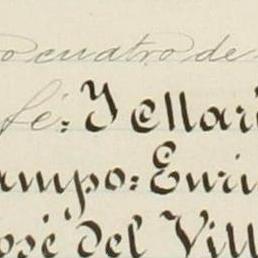 o cuatro de
fé: Y el Mar
ampo: Enri
José del Vill